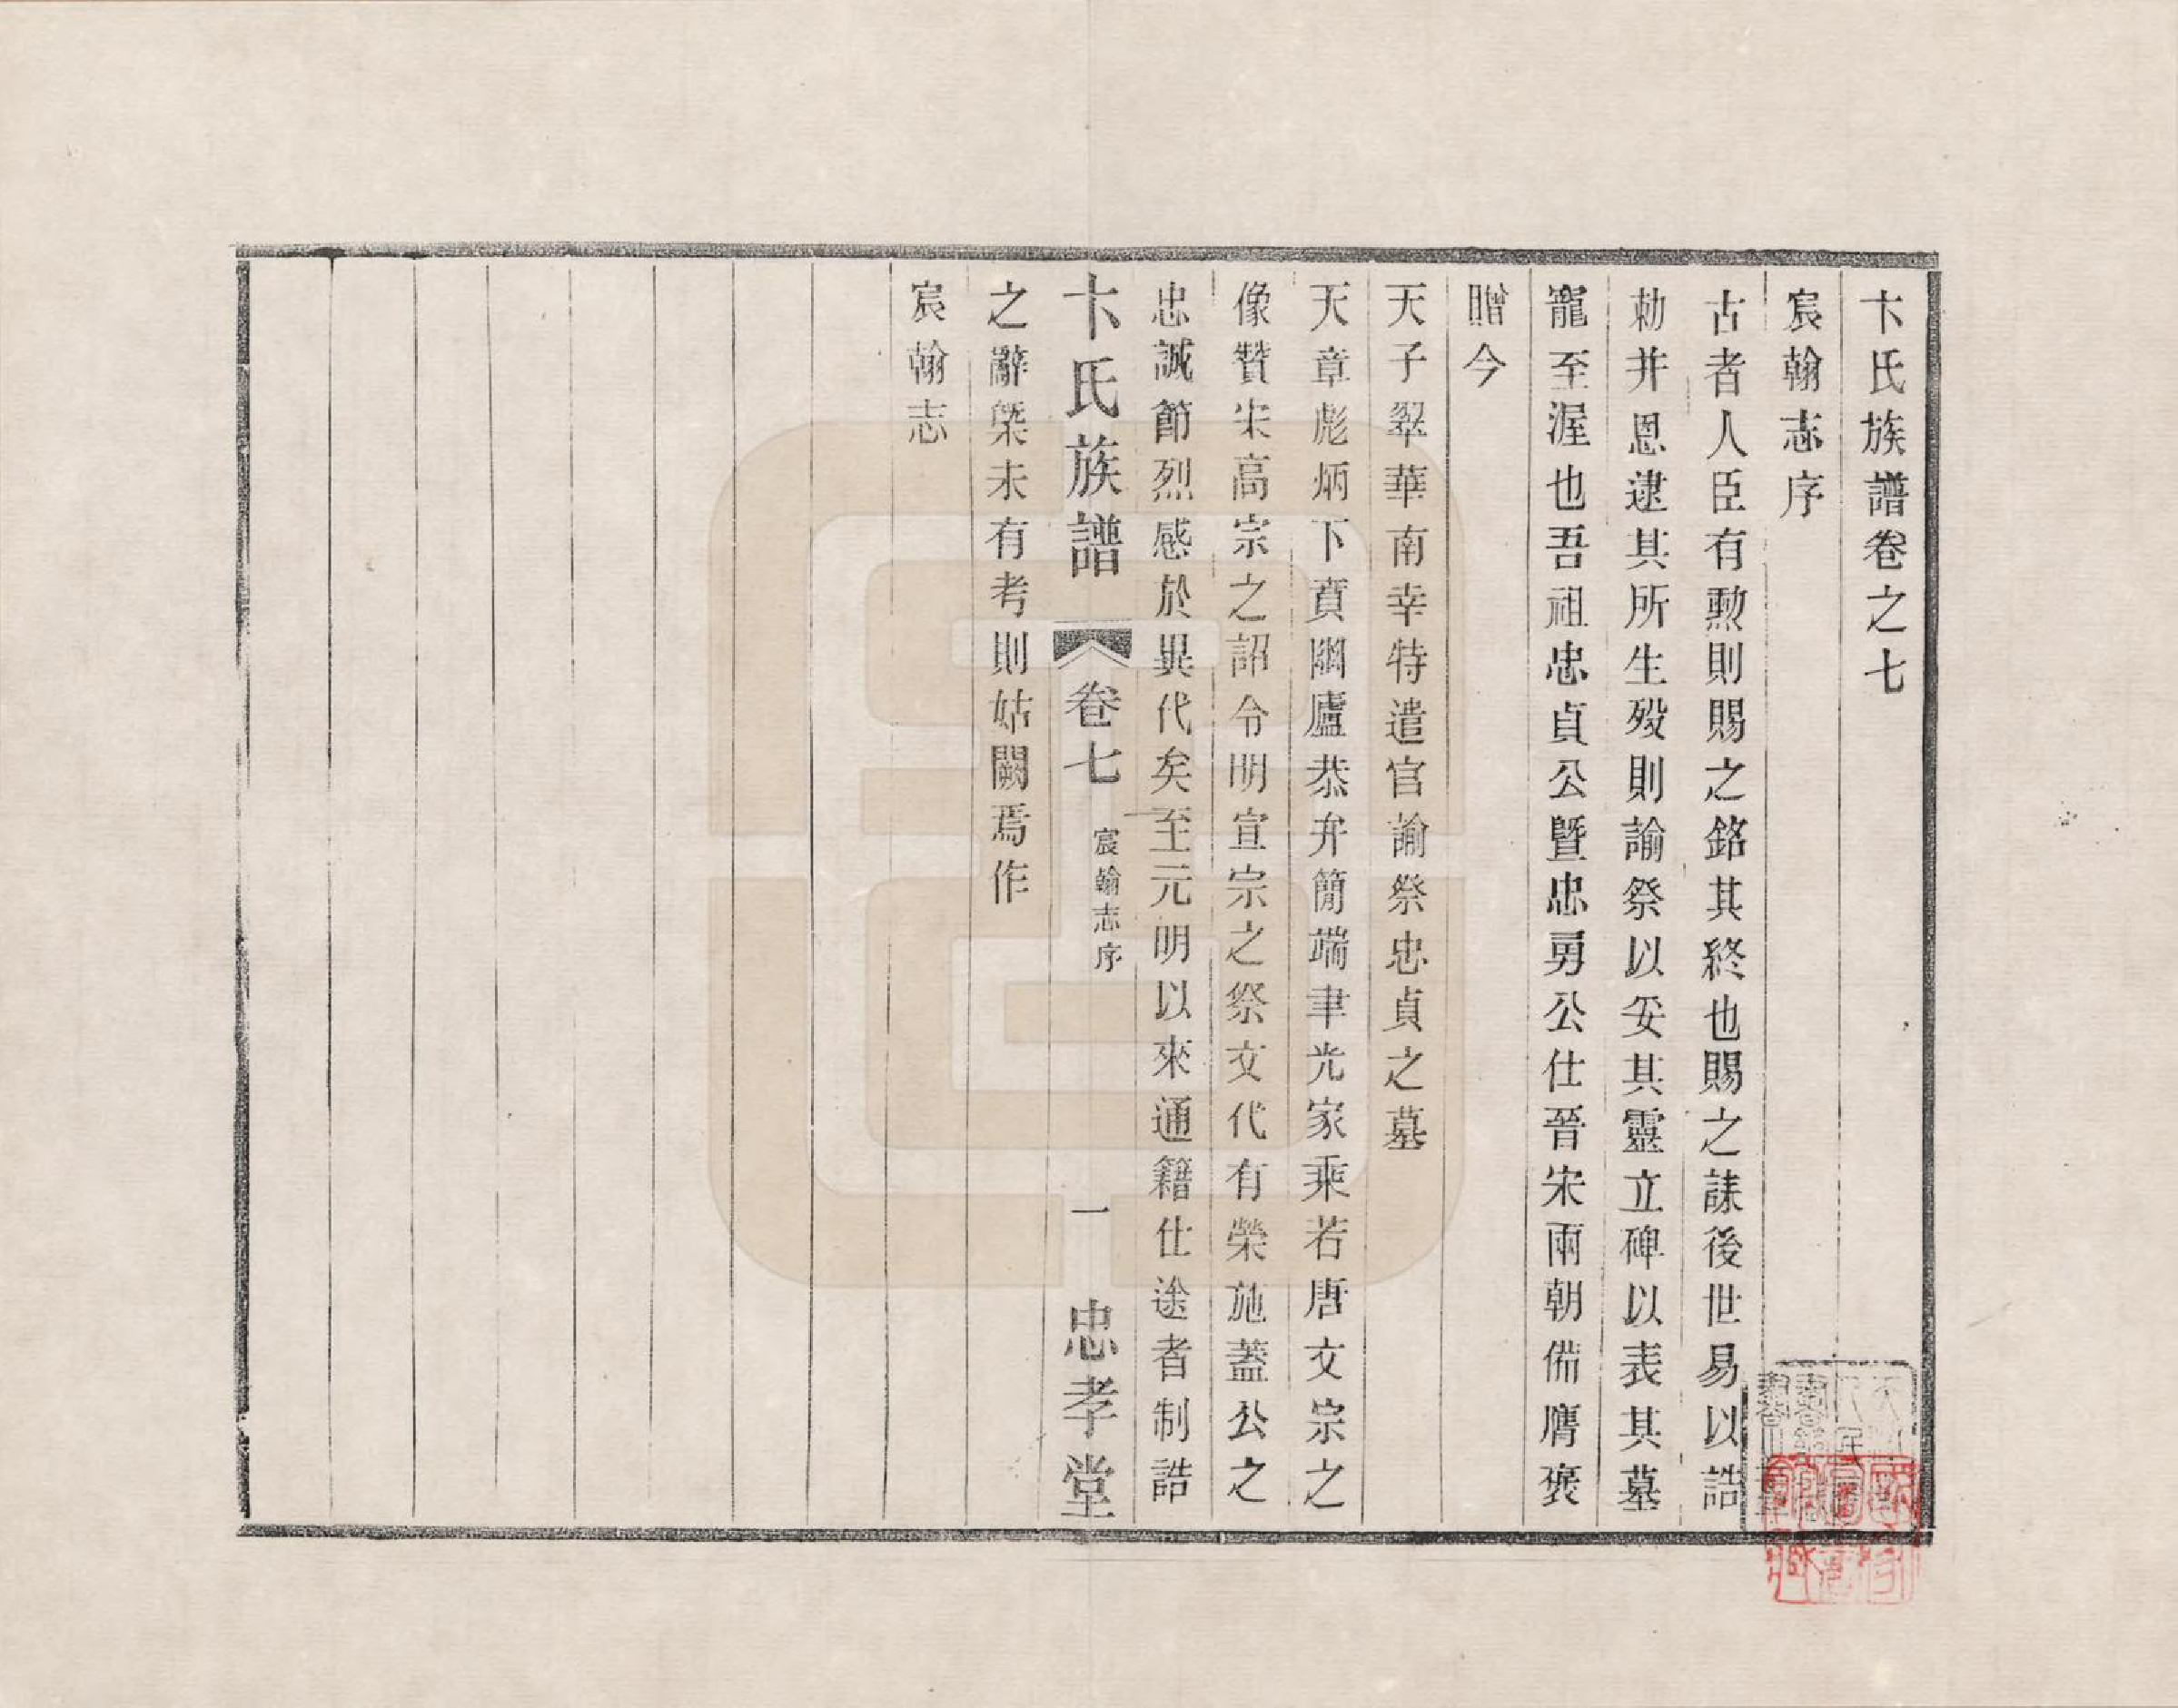 卞氏族譜卷之七
宸翰志序
古者人臣有勲則賜之銘其終也賜之誄後世易以誥
勅并恩逮其所生歿則諭祭以妥其靈立碑以表其墓
寵至渥也吾祖忠貞公暨忠勇公仕晉宋兩朝備膺褒
贈今
天子翠華南幸特遣官諭祭忠貞之墓
天章彪炳下賁幽廬恭弁簡端聿光家乘若唐文宗之
像贊宋高宗之詔令明宣宗之祭文代有榮施蓋公之
忠誠節烈感於異代矣至元明以來通籍仕途者制誥
卞氏族譜 卷七 宸翰志序 一 忠孝堂
之辭槩未有考則姑闕焉作
宸翰志